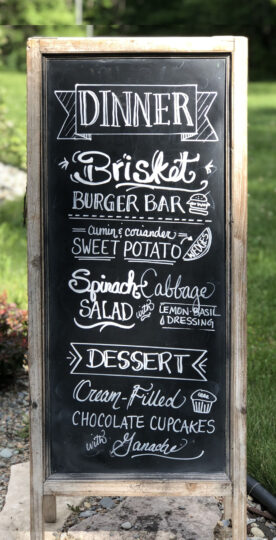 DINNER
Brisket
BURGER BAR
cumin & coriander
SWEET POTATO WEDGES
Spinach & Cabbage
SALAD with LEMON-BASIL
DRESSING
DESSERT
Cream-Filled
CHOCOLATE CUPCAKES
with Ganache